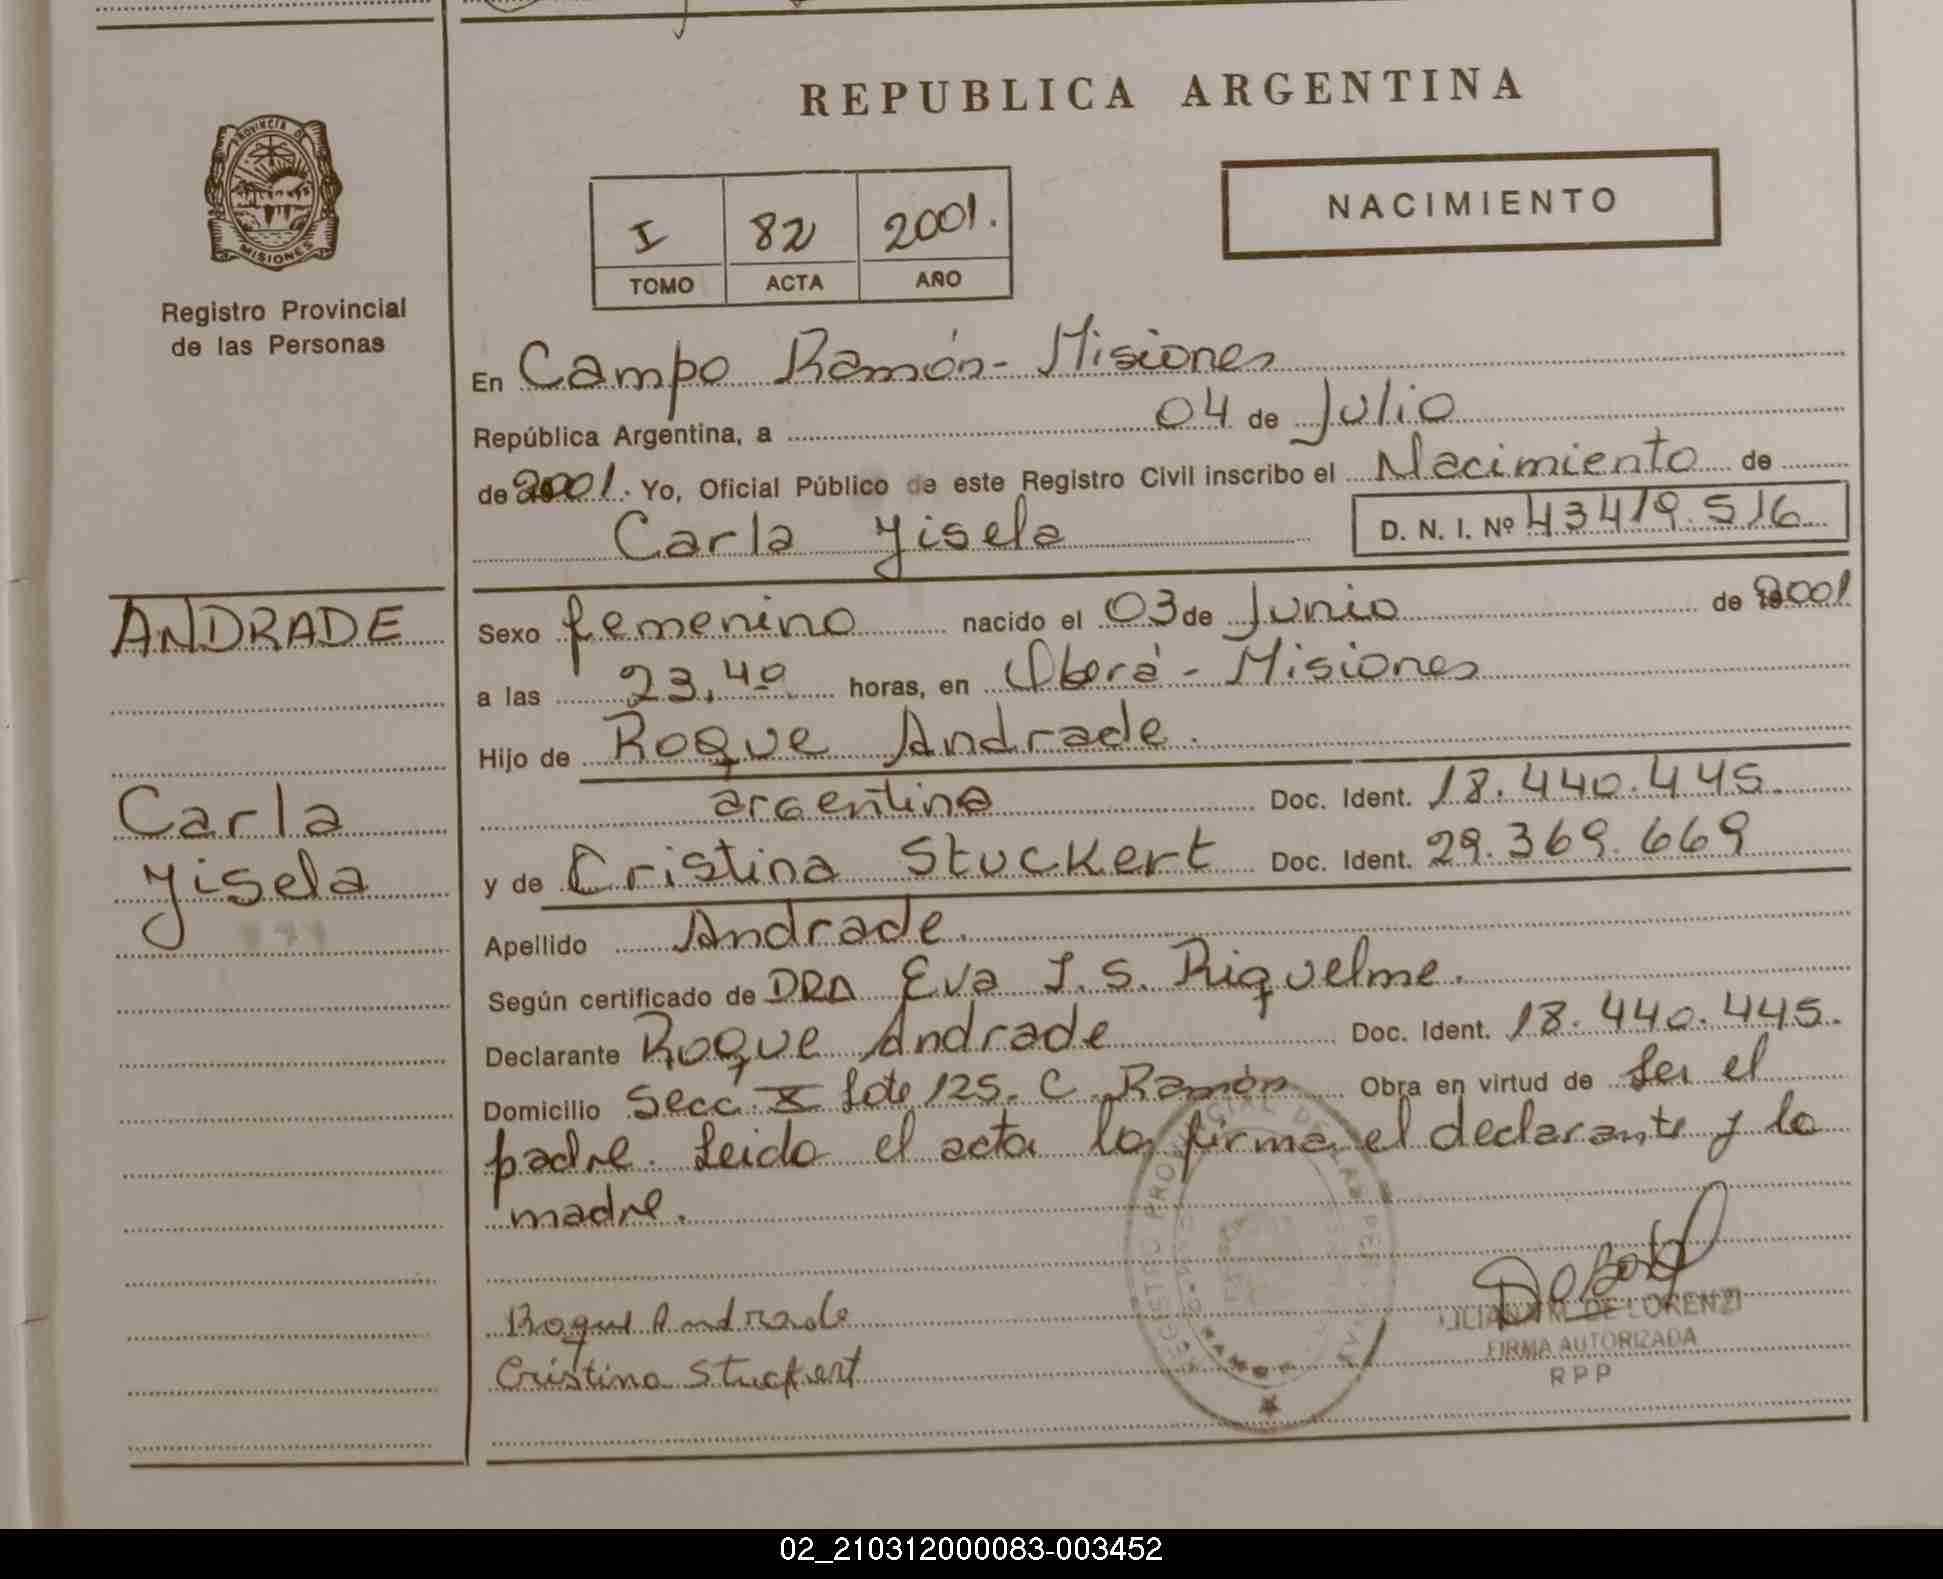 REPUBLICA ARGENTINA
PROVINCIA DE
MISIONES
Registro Provincial
de las Personas
NACIMIENTO
I 82 2001.
TOMO ACTA AÑO
En Campo Ramón - Misiones
República Argentina, a 04 de Julio
de 2001. Yo, Oficial Público de este Registro Civil inscribo el Nacimiento de
Carla Yisela D. N. I. Nº 43419.516
ANDRADE
Carla
Yisela
Sexo femenino nacido el 03 de Junio de 2001
a las 23,40 horas, en Oberá - Misiones
Hijo de Roque Andrade.
argentina Doc. Ident. 18.440.445.
y de Cristina Stuckert Doc. Ident. 29.369.669
Apellido Andrade.
Según certificado de DRA Eva I. S. Riquelme.
Declarante Roque Andrade Doc. Ident. 18.440.445.
Domicilio Secc. X Lote 125. C. Ramón Obra en virtud de Ser el
padre. Leida el acta la firma el declarante y la
madre.
Roque Andrade
Cristina Stuckert
DE LORENZI
FIRMA AUTORIZADA
RPP
02_210312000083-003452